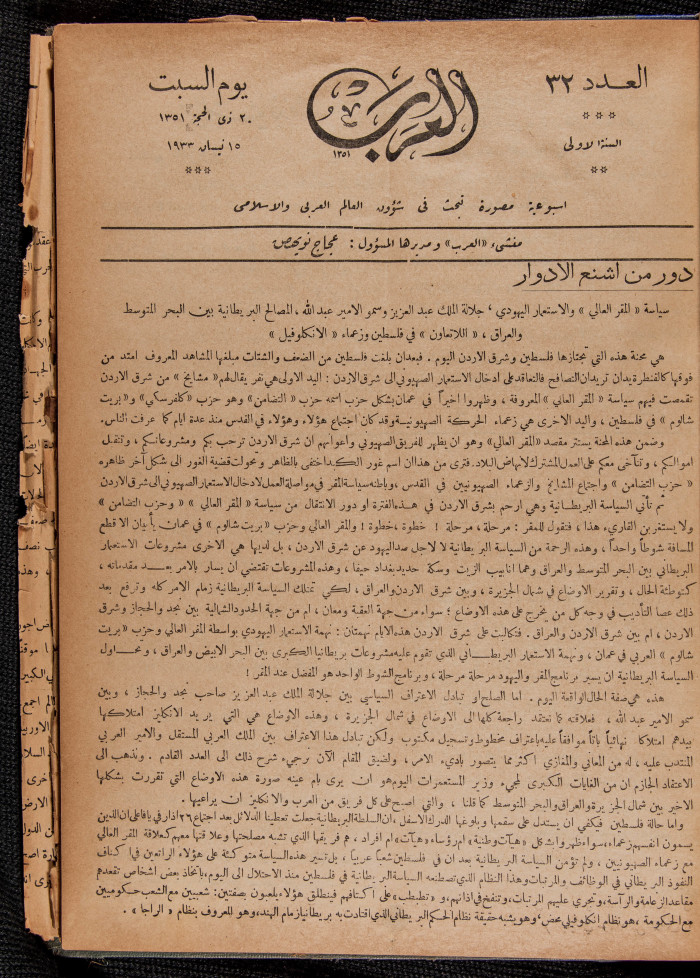 العدد ٣٢
السنة الاولى
العرب
١٣٥١
يوم السبت
٢٠ ذى الحجة ١٣٥١
١٥ نيسان ١٩٣٣
اسبوعية مصورة تبحث فى شؤون العالم العربى والاسلامى
منشىء «العرب» ومديرها المسؤول : عجاج نويهض
دور من اشنع الادوار
سياسة « المقر العالي » والاستعمار اليهودي ، جلالة الملك عبد العزيز وسمو الامير عبد الله ، المصالح البريطانية بين البحر المتوسط
والعراق ، « اللاتعاون » في فلسطين وزعماء « الانكلوفيل »
هي محنة هذه التي تجتازها فلسطين وشرق الاردن اليوم . فبعد ان بلغت فلسطين من الضعف والشتات مبلغها المشاهد المعروف امتد من
فوقها كالقنطرة يدان تريدان التصافح فالتعاقد على ادخال الاستعمار الصهيوني الى شرق الاردن : اليد الاولى هي نفر يقال لهم « مشايخ » من شرق الاردن
تقمصت فيهم سياسة « المقر العالي » المعروفة ، وظهروا اخيراً في عمان بشكل حزب اسمه حزب « التضامن » وهو حزب « كلفرسكي » و« بريت
شالوم » في فلسطين ، واليد الاخرى هي زعماء الحركة الصهيونية وقد كان اجتماع هؤلاء وهؤلاء في القدس منذ عدة ايام كما عرفت الناس.
وضمن هذه المحنة يستتر مقصد «المقر العالي» وهو ان يظهر للفريق الصهيوني واعوانهم ان شرق الاردن ترحب بكم ومشروعاتكم ، وتنقل
اموالكم ، وتتآخى معكم على العمل المشترك لانهاض البلاد. فترى من هذا ان اسم غور الكبد اختفى بالظاهر وتحولت قضية الغور الى شكل آخر ظاهره
« حزب التضامن » واجتماع المشايخ والزعماء الصهيونيين في القدس ، وباطنه سياسة المقر في مواصلة العمل لادخال الاستعمار الصهيوني الى شرق الاردن
ثم تأبي السياسة البريطانية وهي ارحم بشرق الاردن في هذه الفترة او دور الانتقال من سياسة « المقر العالي » « وحزب التضامن »
ولا يستغربن القاريء هذا ، فتقول للمقر : مرحلة ، مرحلة ! خطوة ، خطوة ! والمقر العالي وحزب « بريت شالوم » في عمان يأبيان الا قطع
المسافة شوطاً واحداً ، وهذه الرحمة من السياسة البريطانية لا لاجل صد اليهودية عن شرق الاردن ، بل لديها هي الاخرى مشروعات الاستعمار
البريطاني بين البحر المتوسط والعراق وهما انابيب الزيت وسكة حديد بغداد حيفا ، وهذه المشروعات تقتضي ان يسار بالامر بعد مقدماته ،
كتوطئة الحال ، وتقرير الاوضاع في شمال الجزيرة ، وبين شرق الاردن والعراق ، لكي تمتلك السياسة البريطانية زمام الامر كله وترفع بعد
ذلك عصا التأديب في وجه كل من يخرج على هذه الاوضاع ؛ سواء من جهة العقبة ومعان ، ام من جهة الحدود الشمالية بين نجد والحجاز وشرق
الاردن ، ام بين شرق الاردن والعراق . فتكالبت على شرق الاردن هذه الايام نهمتان : نهمة الاستعمار اليهودي بواسطة المقر العالي وحزب « بريت
شالوم » العربي في عمان ، ونهمة الاستعمار البريطاني الذي تقوم عليه مشروعات بريطانيا الكبرى بين البحر الابيض والعراق ، وتحاول
السياسة البريطانية ان يسير برنامج المقر واليهود مرحلة مرحلة ، وبرنامج الشوط الواحد هو المفضل عند المقر !
هذه هي صفة الحال الواقعة اليوم . اما الصلح او تبادل الاعتراف السياسي بين جلالة الملك عبد العزيز صاحب نجد والحجاز ، وبين
سمو الامير عبد الله ، فعلاقته كما نعتقد راجعة كلها الى الاوضاع في شمال الجزيرة ، وهذه الاوضاع هي التي يريد الانكليز امتلاكها
بيدهم امتلاكا نهائياً باتاً موافقاً عليه باعتراف مخطوط وتسجيل مكتوب ولكن تبادل هذا الاعتراف بين الملك العربي المستقل والامير العربي
المنتدب عليه ، له من المعاني والمغازي اكثر مما يتصور باديء الامر ، ولضيق المقام الآن نرجيء شرح ذلك الى العدد القادم . ونذهب الى
الاعتقاد الجازم ان من الغايات الكبرى لمجيء وزير المستعمرات اليوم هو ان يرى بام عينه صورة هذه الاوضاع التي تقررت بشكلها
الاخير بين شمال الجزيرة والعراق والبحر المتوسط كما قلنا ، والتي اصبح على كل فريق من العرب والانكليز ان يراعيها .
واما حالة فلسطين فيكفي ان يستدل على سقمها وبلوغها الدرك الاسفل ، ان السلطة البريطانية جعلت تعطينا الدلائل بعد اجتماع ٢٦ اذار في يافا على ان الذين
يسمون انفسهم زعماء ، سواء ظهروا بشكل «هيآت وطنية» ام رؤساء «هيآت» ام افراد ، هم فريقها الذي تشبه مصلحتها وعلاقتها معهم كعلاقة المقر العالي
مع زعماء الصهيونيين ، ولم تؤمن السياسة البريطانية بعد ان في فلسطين شعباً عربياً ، بل تسير هذه السياسة متوكئة على هؤلاء الراتعين في اكناف
النفوذ البريطاني في الوظائف والمرتبات وهذا النظام الذي تصطنعه السياسة البريطانية في فلسطين منذ الاحتلال الى اليوم ، باتخاذ بعض اشخاص تقعدهم
مقاعد الزعامة والرآسة ، وتجري عليهم المرتبات ، وتنفخ في آذانهم ، و « تطبطب » على اكتافهم فينطلق هؤلاء يلعبون بصفتين : شعبيين مع الشعب حكوميين
مع الحكومة ، هو نظام انكلوفيلي محض ، وهو يشبه حقيقة نظام الحكم البريطاني الذي اقتادت به بريطانيا زمام الهند ، وهو المعروف بنظام « الراجا » .